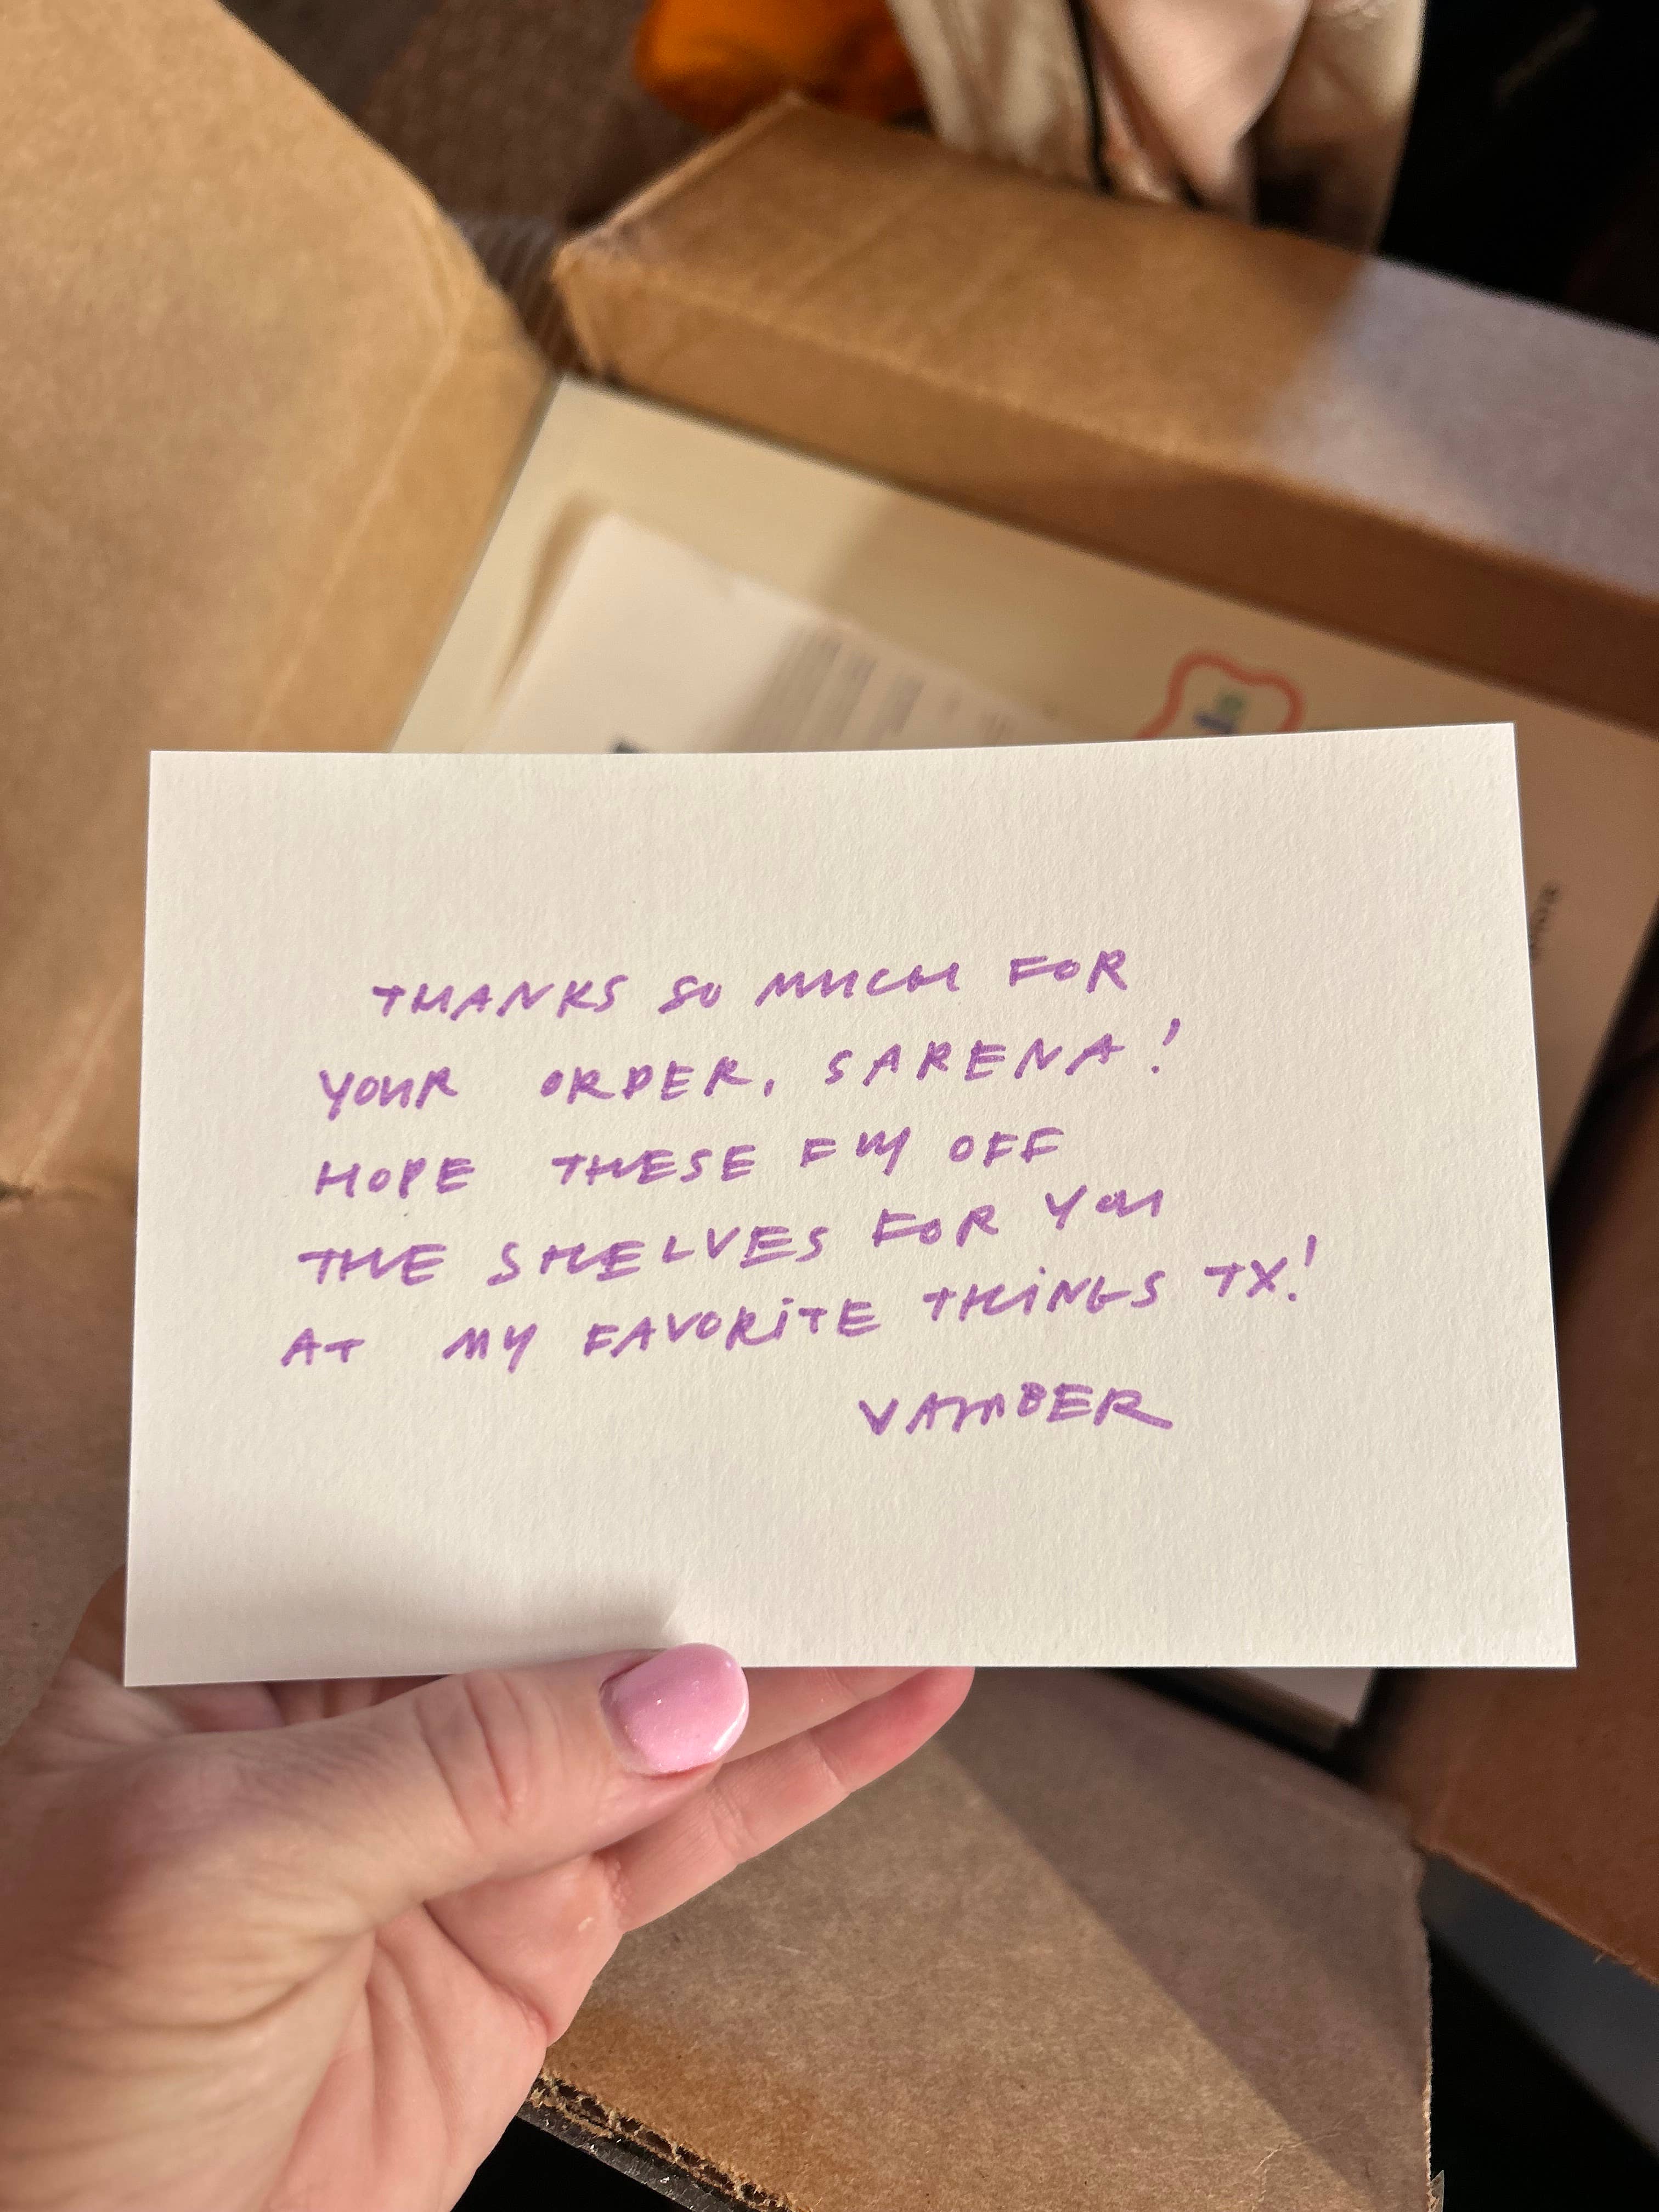 THANKS SO MUCH FOR
YOUR ORDER, SARENA!
HOPE THESE FLY OFF
THE SHELVES FOR YOU
AT MY FAVORITE THINGS TX!
VAMBER